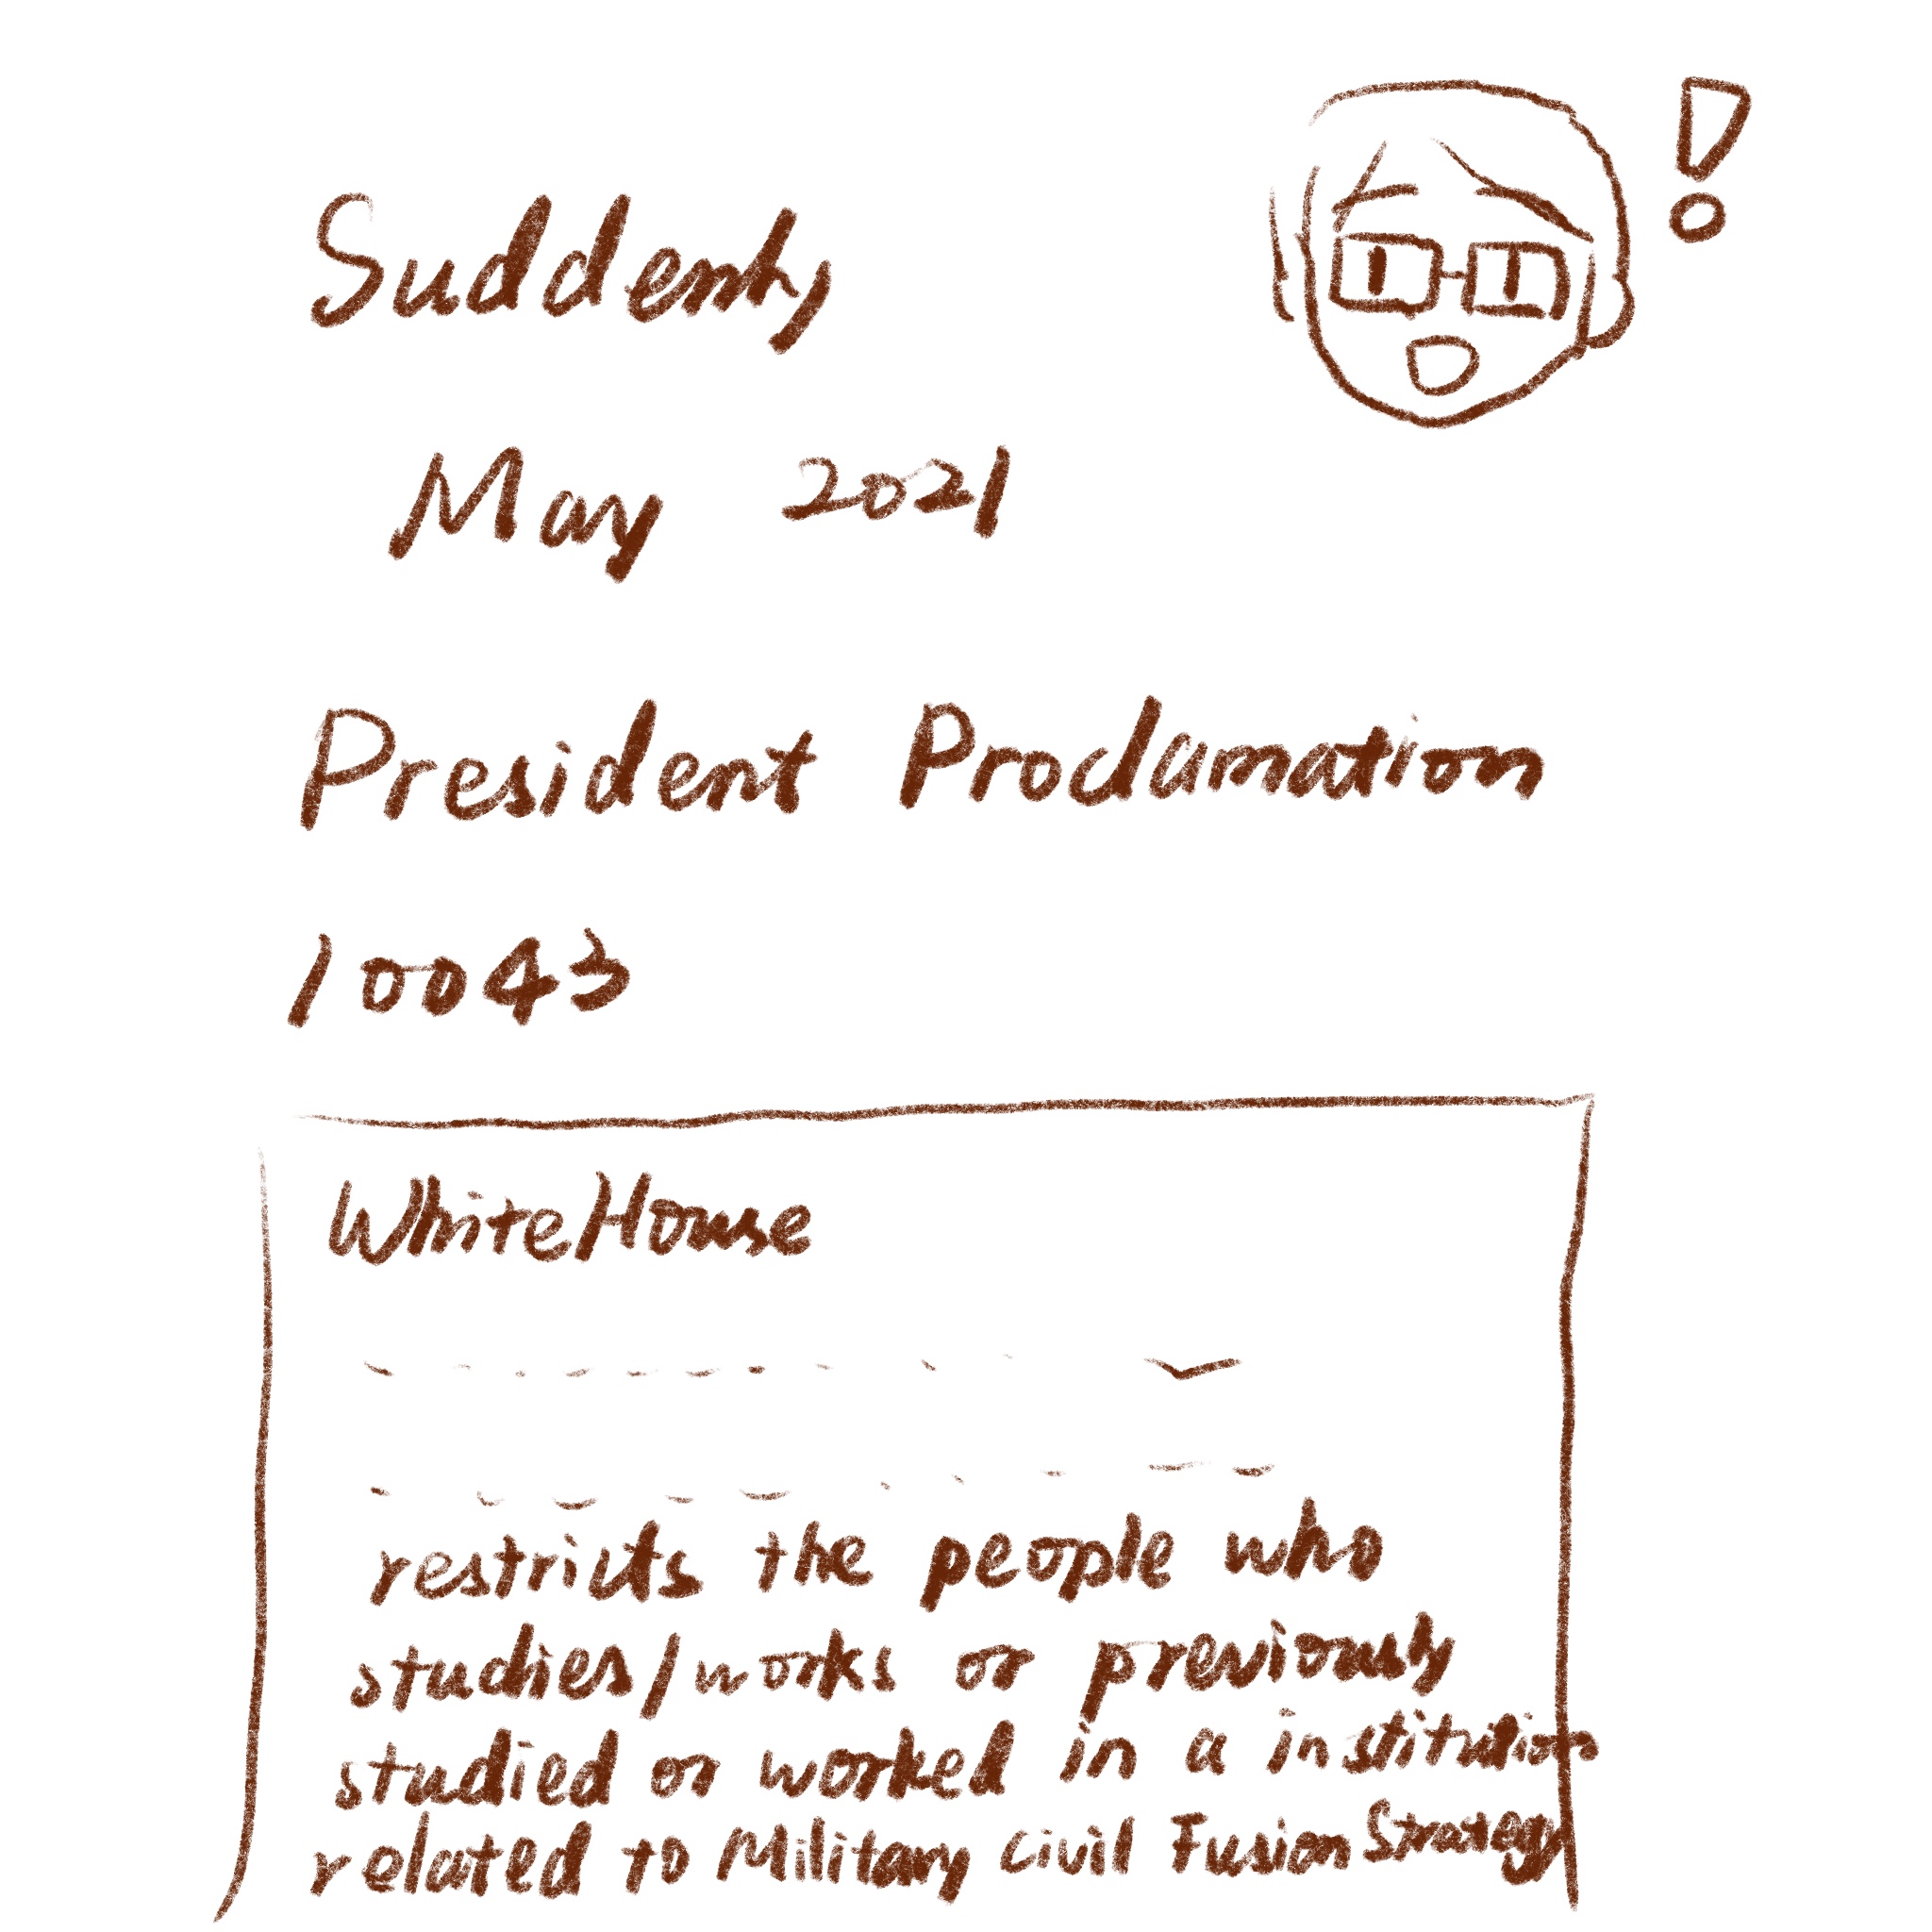 Suddenly
May 2021
President Proclamation
10043
WhiteHouse
restricts the people who
studies/works or previously
studied or worked in a institution
related to Military Civil Fusion Strategy